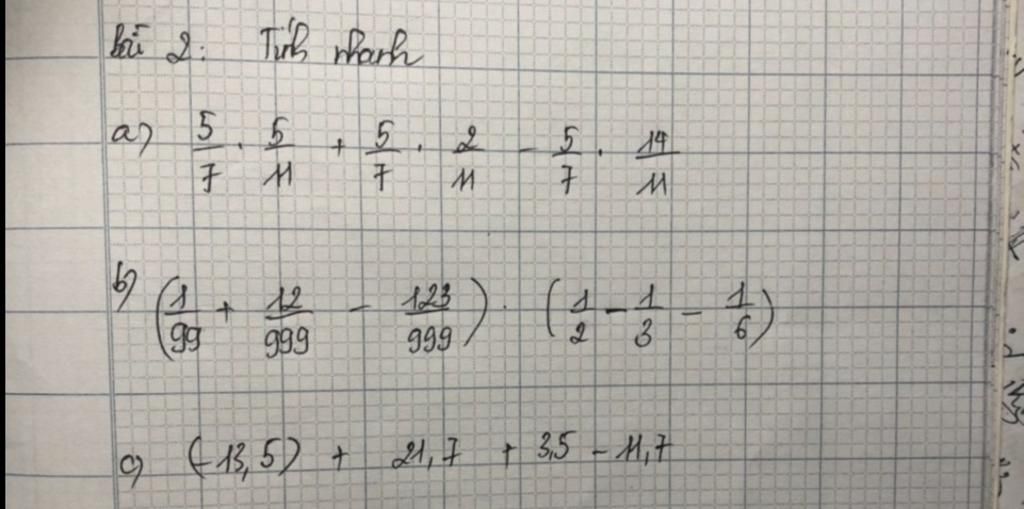 Bài 2: Tính nhanh
a) 5/7 . 5/11 + 5/7 . 2/11 - 5/7 . 14/11
b) (1/99 + 12/999 - 123/999) . (1/2 - 1/3 - 1/6)
c) (-13,5) + 21,7 + 3,5 - 11,7